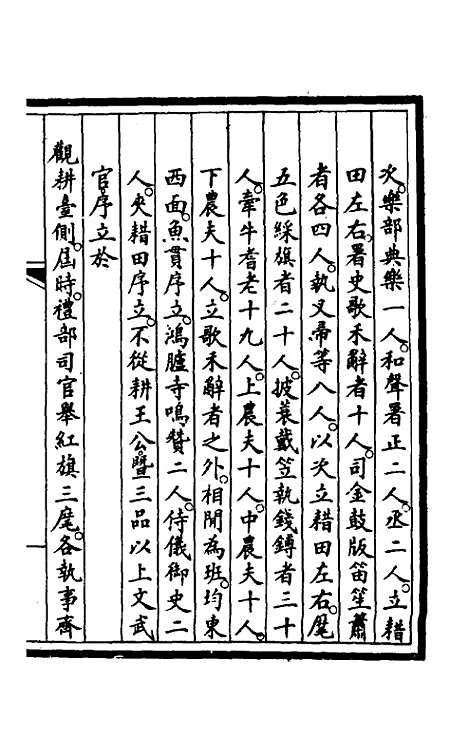 次。樂部典樂一人。和聲署正二人。丞二人。立耤
田左右。署史歌禾辭者十人。司金鼓版笛笙簫
者各四人。執叉帚等八人。以次立耤田左右。麾
五色綵旗者二十人。披蓑戴笠執錢鎛者三十
人。牽牛耆老十九人。上農夫十人。中農夫十人。
下農夫十人。立歌禾辭者之外。相閒為班。均東
西面。魚貫序立。鴻臚寺鳴贊二人。侍儀御史二
人。夾耤田序立。不從耕王公暨三品以上文武
官。序立於
觀耕臺側。屆時。禮部司官舉紅旗三麾。各執事齊